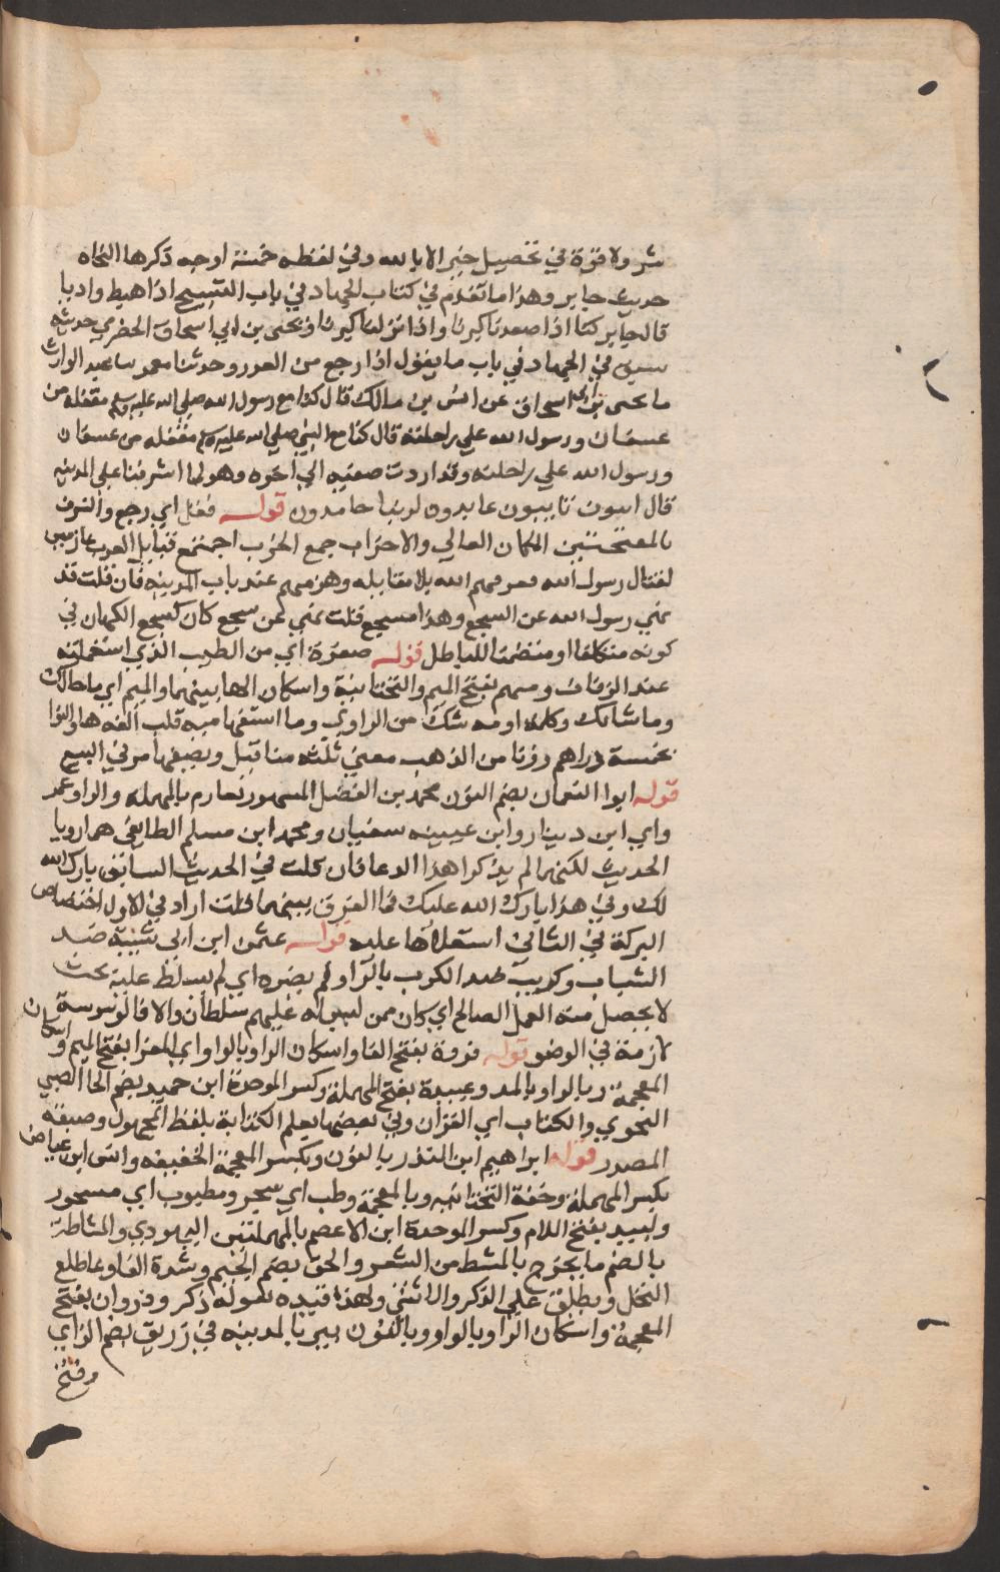 شر ولا قوة في تحصيل خير الا بالله وفي لفظه خمسة اوجه ذكرها النحاه
حديث جابر وهذا ما تقدم في كتاب الجهاد في باب التسبيح اذا هبط واديا
قال جابر كنا اذا صعدنا كبرنا واذا نزلنا كبرنا ويحيى بن ابي اسحاق الحضرمي حديثه
سبق في الجهاد في باب ما يقول اذا رجع من الغزو وحدثنا معمر سا عبد الوارث
ما يحيى بن ابي اسحاق عن انس بن مالك قال كنا مع رسول الله صلى الله عليه وسلم مقفله من
عسفان ورسول الله علي راحلته قال كنا مع النبي صلى الله عليه وسلم مقفله من عسفان
ورسول الله علي راحلته وقد اردت صفيه الي اخره وهو لما اشرفنا على المدينه
قال ايبون تايبون عابدون لربنا حامدون قوله قفل اي رجع والشرف
بالمفتحتين المكان العالي والاحزاب جمع الحزب اجتمع قبايل العرب عازمين
لقتال رسول الله فهزمهم الله بلا مقابله وهزمهم عند باب المدينه فان قلت قد
نهي رسول الله عن السجع وهذا مسجع قلت نهي عن سجع كان كسجع الكهان في
كونه متكلفا او متضمنا للباطل قوله صفرة اي من الطيب الذي استعملته
عند الزفاف ومهيم بفتح الميم والتحتانية واسكان الها بينهما والميم اي ما حالك
وما شانك وكلمة او مه شك من الراوي وما استفهاميه قلب الفه ها والنوا
خمسة دراهم وزنا من الذهب معني ثلثه مثاقيل ونصفها مر في البيع
قوله ابوا النعمان بضم النون محمد بن الفضل المشهور بعارم بالمهمله والراو عمر
واي ابن دينار وابن عيينه سفيان ومحمد ابن مسلم الطايفي هما رويا
الحديث لكنهما لم يذكرا هذا الدعا فان قلت في الحديث السابق بارك الله
لك وفي هذا بارك الله عليك فما الفرق بينهما قلت اراد في الاول اختصاص
البركة في الثاني استعلاها عليه قوله عثمن ابن ابي شيبة ضد
الشباب وكريب ضد الكرب بالرا ولم يضره اي لم يسلط عليه بحيث
لا يحصل منه العمل الصالح اي كان ممن ليس له عليهم سلطان والا فالوسوسة
لازمة في الوضو قوله فروة بفتح الفا واسكان الرا وبالواو ابي المغرا بفتح الميم واسكان
المعجمة وبالرا وبالمد وعبيدة بفتح المهملة وكسر الموحدة ابن حميد بضم الحا الضبي
النحوي والكتاب اي القران وفي بعضها يعلم الكتابة بلفظ المجهول وصيغة
المصدر قوله ابراهيم ابن المنذر بالنون وبكسر المعجمة الخفيفه وانس ابن عياض
بكسر المهملة وخفة التحتانيه وبالمعجمة وطب اي سحر ومطبوب اي مسحور
ولبيد بفتح اللام وكسر الموحدة ابن الاعصم بالمهملتين اليهودي والمشاطة
بالضم ما يخرج بالمشط من الشعر والجف بضم الجيم وشدة الفا وعا طلع
النخل ويطلق علي الذكر والانثي ولهذا قيده بقوله ذكر وذروان بفتح
المعجمة واسكان الرا وبالواو وبالنون بير بالمدينه في زريق بضم الزاي
وفتح